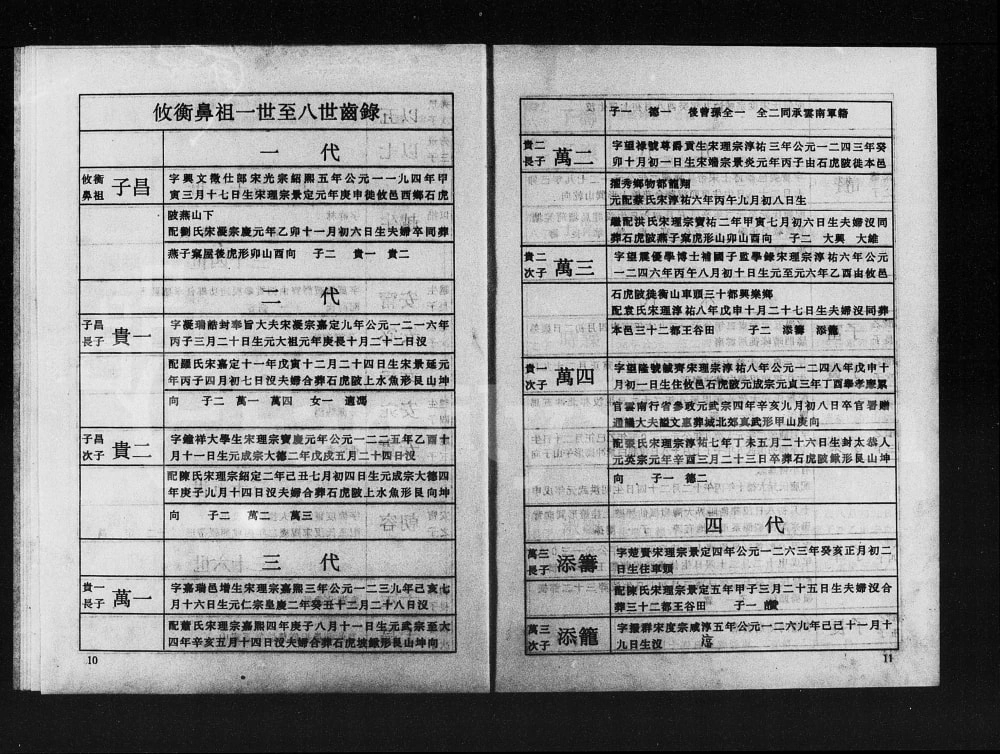 攸衡鼻祖一世至八世齒錄
一　代
攸衡鼻祖 子昌 字興文徵仕郎宋光宗紹熙五年公元一一九四年甲
寅三月十七日生宋理宗景定元年庚申徙攸邑西鄉石虎
陂燕山下
配劉氏宋凝宗慶元年乙卯十一月初六日生夫婦卒同葬
燕子窠屋後虎形卯山酉向　子二　貴一　貴二
二　代
子昌長子 貴一 字凝瑞誥封奉旨大夫宋凝宗嘉定九年公元一二一六年
丙子三月二十日生元大祖元年庚長十月二十二日沒
配羅氏宋嘉定十一年戊寅十二月二十四日生宋景延元
年丙子四月初七日沒夫婦合葬石虎陂上水魚形艮山坤
向　子二　萬一　萬四　女一　適馮
子昌次子 貴二 字鐘祥大學生宋理宗寶慶元年公元一二二五年乙酉十
月十一日生元成宗大德二年戊戌五月二十四日沒
配陳氏宋理宗紹定二年己丑七月初四日生元成宗大德四
年庚子九月十四日沒夫婦合葬石虎陂上水魚形艮向坤
向　子二　萬二　萬三
三　代
貴一長子 萬一 字嘉瑞邑增生宋理宗嘉熙三年公元一二三九年己亥七
月十六日生元仁宗皇慶二年癸丑十二月二十八日沒
配董氏宋理宗嘉熙四年庚子八月十一日生元武宗至大
四年辛亥五月十四日沒夫婦合葬石虎坡鍬形艮山坤向
10
子一　德一　後曾孫全一　全二同承雲南軍籍
貴二長子 萬二 字望祿號尊爵貢生宋理宗淳祐三年公元一二四三年癸
卯十月初一日生宋端宗景炎元年丙子由石虎陂徙本邑
擢秀鄉物都龍翔
元配蔡氏宋淳祐六年丙午九月初八日生
繼配洪氏宋理宗寶祐二年甲寅七月初六日生夫婦沒同
葬石虎陂燕子窠虎形山卯山酉向　子二　大興　大雄
貴二次子 萬三 字望震優學博士補國子監學錄宋理宗淳祐六年公元
一二四六年丙午八月初十日生元至元六年乙酉由攸邑
石虎陂徙衡山車頭三十都興樂鄉
配袁氏宋理宗淳祐八年戊申十月二十七日生夫婦沒同葬
本邑三十二都王谷田　子二　添籌　添籠
貴一次子 萬四 字望隆號毓齊宋理宗淳祐八年公元一二四八年戊申十
月初一日生住攸邑石虎陂元成宗元貞三年丁酉舉孝廉累
官雲南行省參政元武宗四年辛亥九月初八日卒官署贈
通議大夫謚文惠葬城北郊真武形甲山庚向
配張氏宋理宗淳祐七年丁未五月二十六日生封太恭人
元英宗元年辛酉三月二十三日卒葬石虎陂鍬形艮山坤
向　子一　德二
四　代
萬三長子 添籌 字楚賚宋理宗景定四年公元一二六三年癸亥正月初二
日生住車頭
配陳氏宋理宗景定五年甲子三月二十五日生夫婦沒合
葬三十二都王谷田　子一　讚
萬三次子 添籠 字掇群宋度宗咸淳五年公元一二六九年己巳十一月十
九日生沒
11